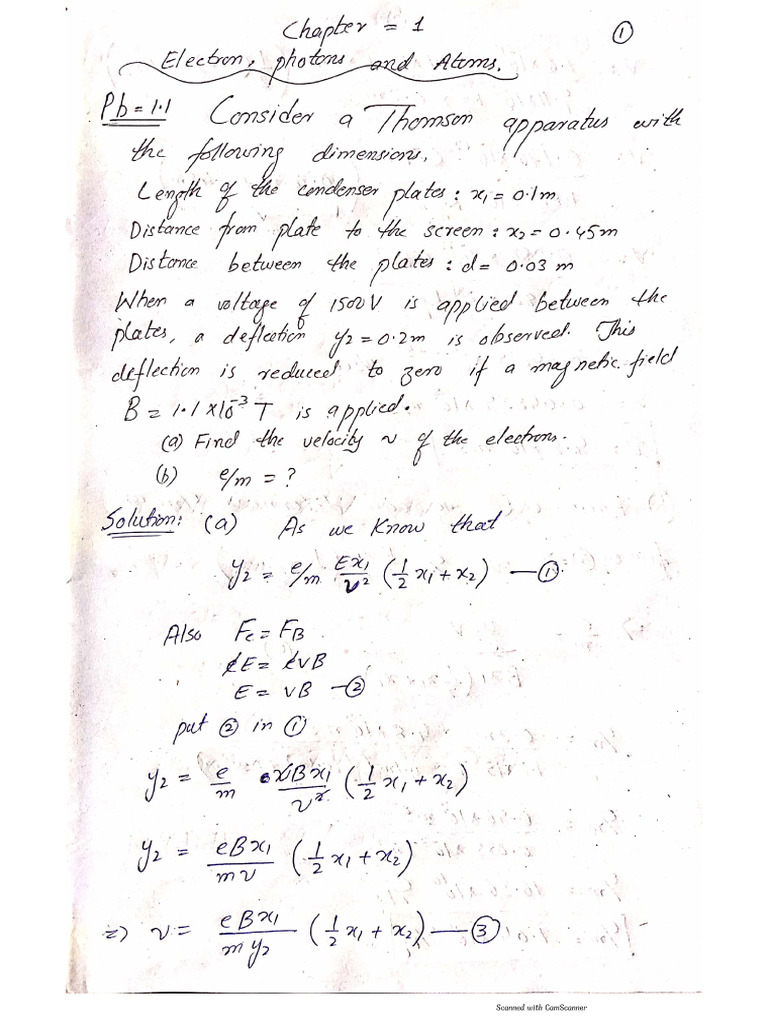 Chapter = 1
①
Electron, photons and Atoms.
Pb = 1.1 Consider a Thomson apparatus with
the following dimensions.
Length of the condenser plates : x₁ = 0.1m
Distance from plate to the screen : x₂ = 0.45m
Distance between the plates : d = 0.03 m
When a voltage of 1500V is applied between the
plates, a deflection y₂ = 0.2m is observed. This
deflection is reduced to zero if a magnetic field
B = 1.1 × 10⁻³ T is applied.
(a) Find the velocity v of the electrons.
(b) e/m = ?
Solution: (a) As we know that
y₂ = e/m Ex₁/v² (1/2 x₁ + x₂) — ①.
Also Fe = FB
eE = evB
E = vB — ②
put ② in ①
y₂ = e/m vBx₁/v² (1/2 x₁ + x₂)
y₂ = eBx₁/mv (1/2 x₁ + x₂)
=> v = eBx₁/my₂ (1/2 x₁ + x₂) — ③
Scanned with CamScanner